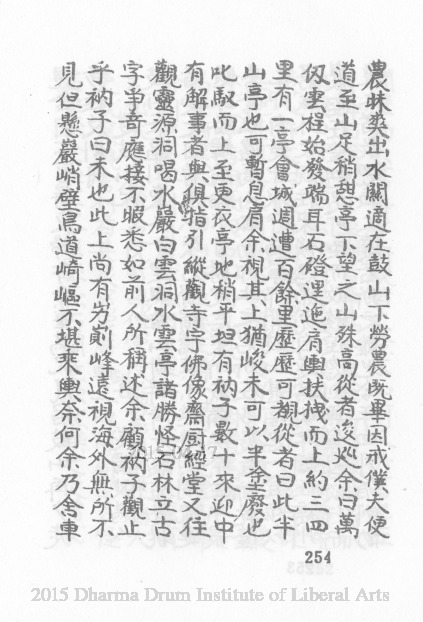 農昧爽出水關適在鼓山下勞農既畢因戒僕夫便
道至山足稍憩亭下望之山殊高從者逡巡余曰萬
仭雲程始發端耳石磴逶迤肩輿扶掖而上約三四
里有一亭會城週遭百餘里歷歷可覩從者曰此半
山亭也可暫息肩余視其上猶峻未可以半塗廢也
叱馭而上至更衣亭地稍平坦有衲子數十來迎中
有解事者與俱指引縱觀寺宇佛像齋厨經堂又往
觀靈源洞喝水巖白雲洞水雲亭諸勝怪石林立古
字爭奇應接不暇悉如前人所稱述余顧衲子觀止
乎衲子曰未也此上尚有屴崱峰遠視海外無所不
見但懸巖峭壁鳥道崎嶇不堪乘輿奈何余乃舍車
254
2015 Dharma Drum Institute of Liberal Arts